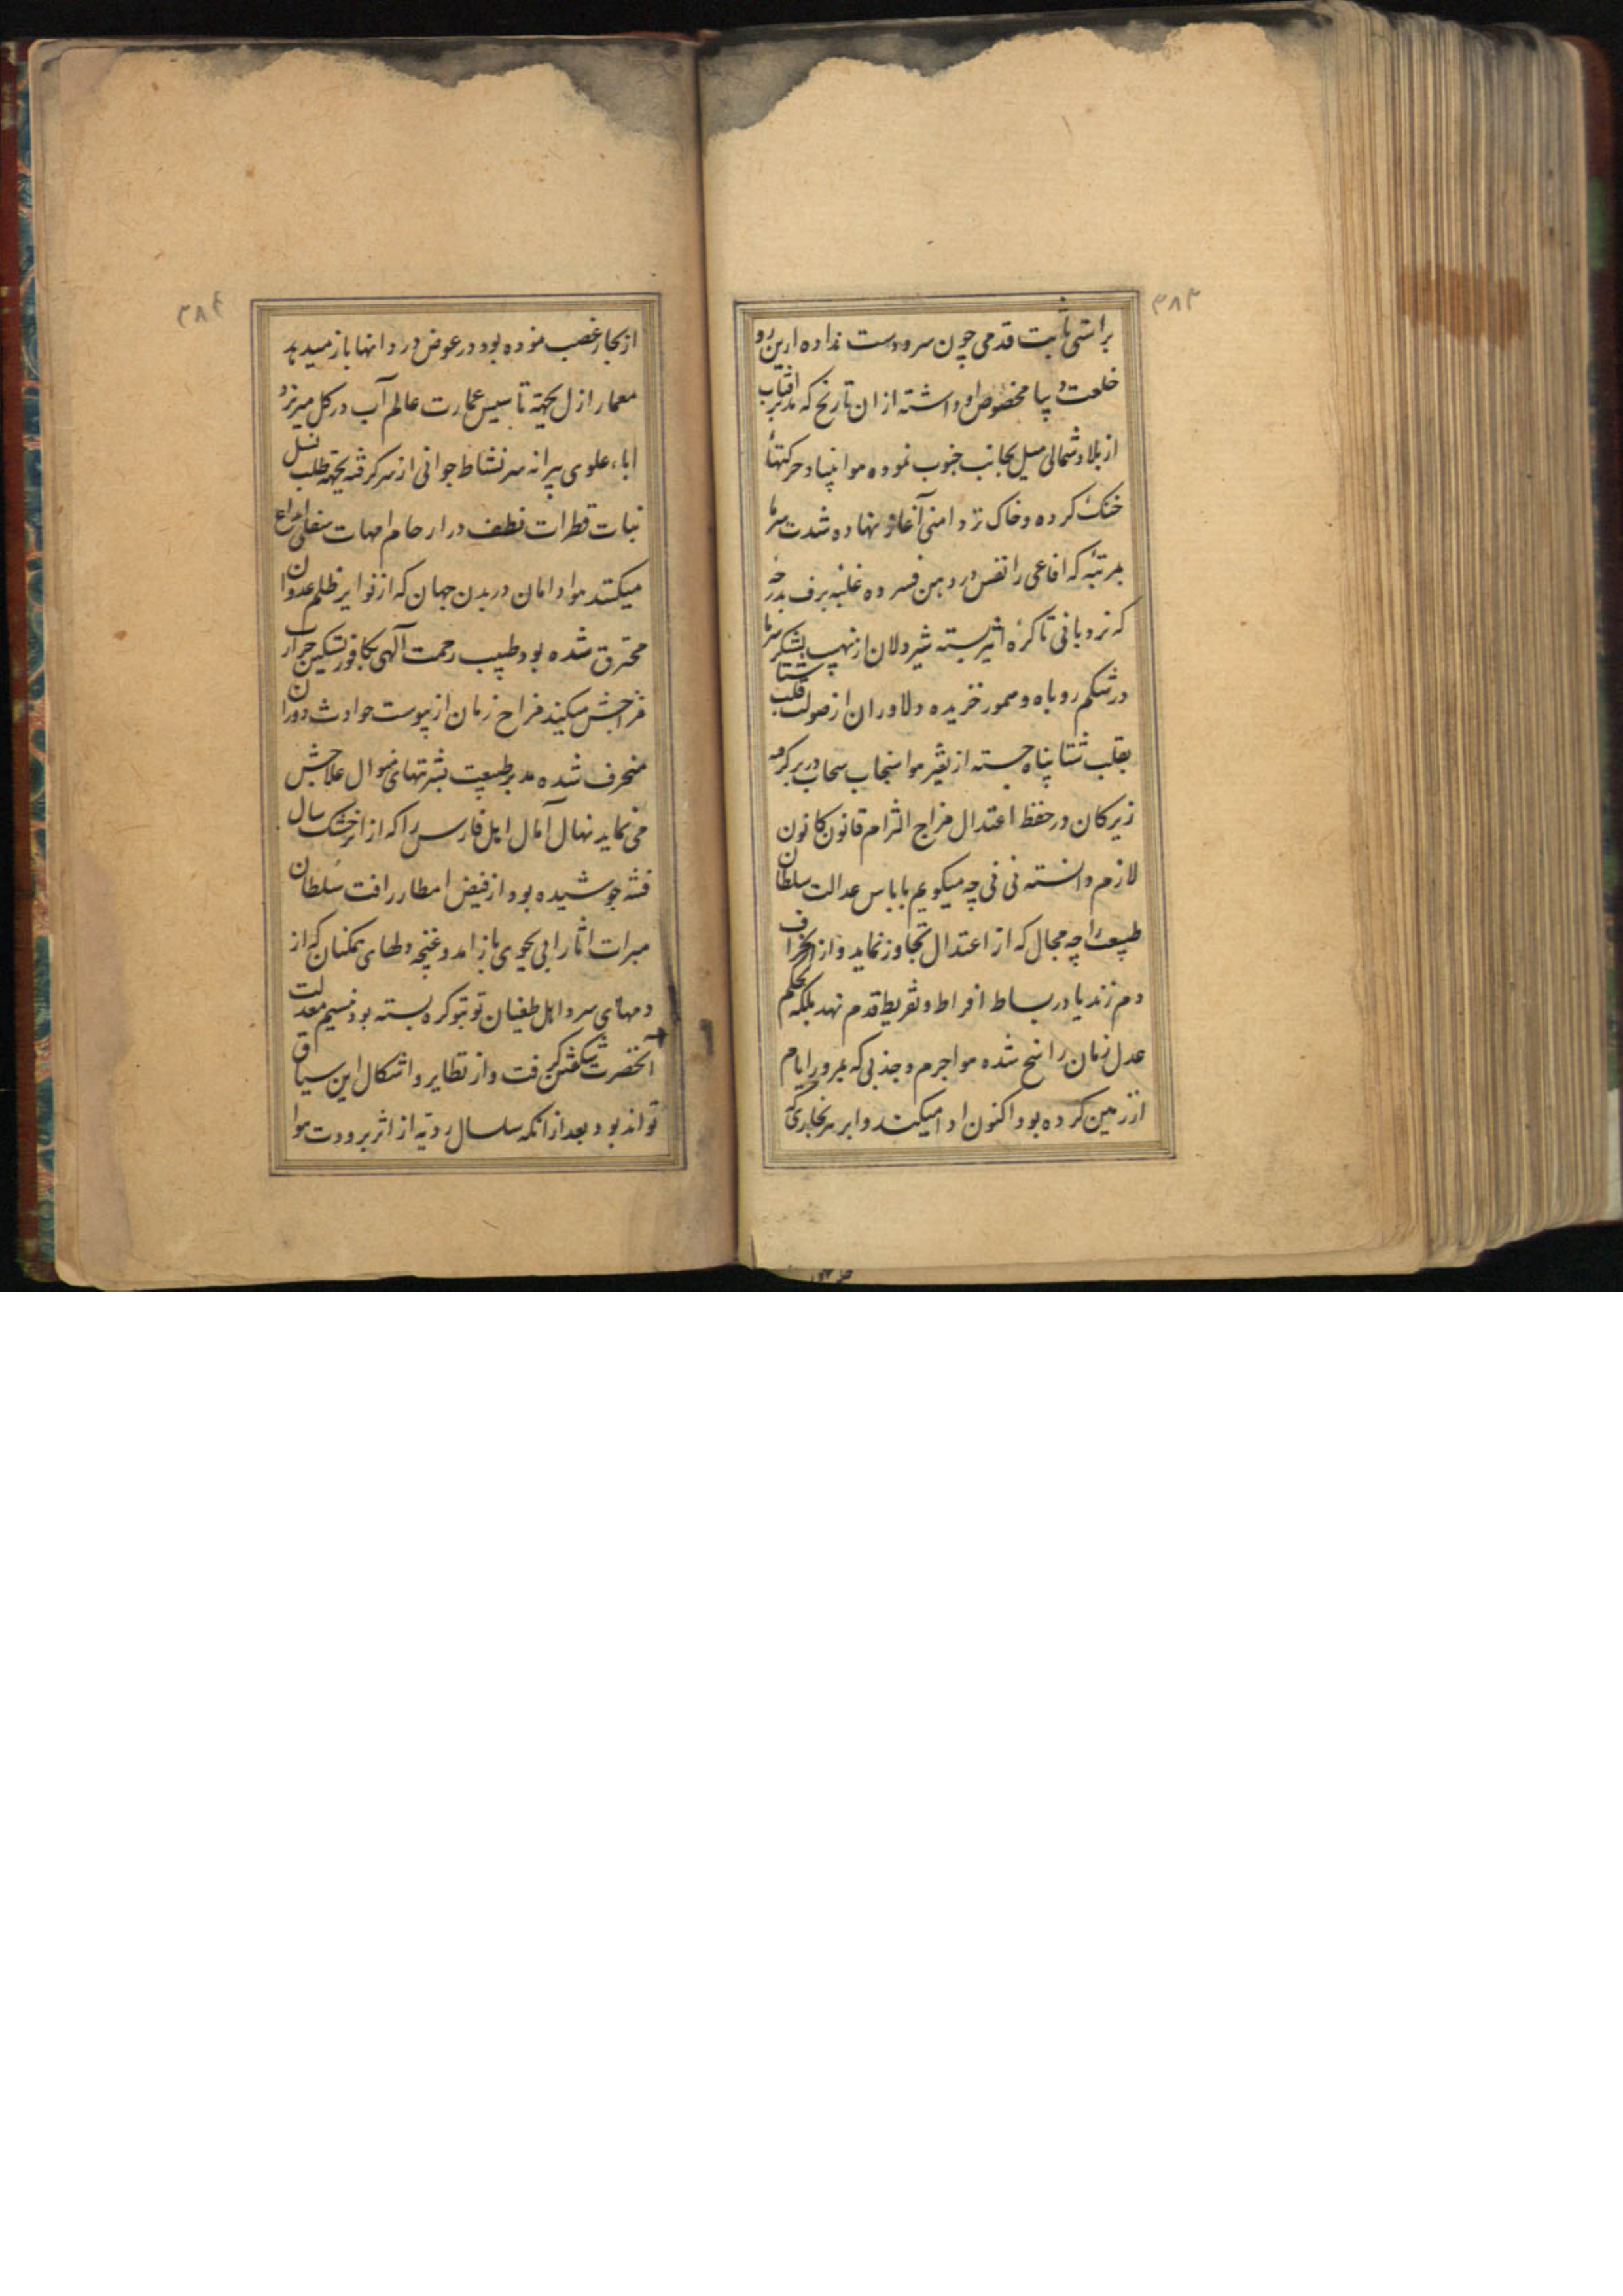 ۳۸۳
براستی ثابت قدمی چون سرو دست نداده ازین رو
خلعت دیبا مخصوص او داشته از ان تاریخ که تدبیر افتاب
از بلاد شمالی میل بجانب جنوب نموده هوا بنیاد حرکتهاء
خنک کرده و خاک تر دامنی آغاز نهاده شدت سرما
بمرتبه که افاعی را نفس در دهن فسرده غلبه برف بدرجه
که نردبانی تا کره اثیر بسته شیردلان از نهیب لشکر سرما
در شکم روباه و سمور خزیده و دلاوران از صولت قلب شتا
بقلب شتا پناه جسته از تغیر هوا سنجاب سحاب در بر کرده
زیرکان در حفظ اعتدال مزاج التزام قانون کانون
لازم دانسته نی نی چه میکویم با باس عدالت سلطان
طبیعت را چه مجال که از اعتدال تجاوز نماید و از انحراف
دم زند یا در بساط افراط و تفریط قدم نهد بلکه بحکم
عدل زمان راسخ شده هوا جرم و جذبی که بمرور ایام
از زمین کرده بود اکنون ادا میکند و ابر هر بخاری که
۳۸۴
از بحار غصب نموده بود در عوض در دانها باز میدهد
معمار ازل بجهته تاسیس عمارت عالم آب در کل میریزد
اباء علوی پیرانه سر نشاط جوانی از سر کرفته بجهته طلب نسل
نبات قطرات نطف در ارحام امهات سفلی ایداع
میکند مواد امان در بدن جهان که از نوایر ظلم عدوان
محترق شده بود طبیب رحمت آلهی بکافور تسکین حرارت
مزاجش میکند مزاج زمان از یبوست حوادث دوران
منحرف شده مدبر طبیعت بشربتهای نموال علاجش
می نماید نهال آمال اهل فارس را که از اثر خشک سال
فتنه خوشیده بود از فیض امطار رافت سلطان
مبرات اثار ابی بجوی باز امد و غنچه دلهای همکنان که از
دمهای سرد اهل طغیان تو بتو کره بسته بود نسیم معدلت
آنحضرت شکفتن کرفت و از نظایر و اشکال این سیاق
تواند بود بعد از انکه سلسال رویه از اثر برودت هوا